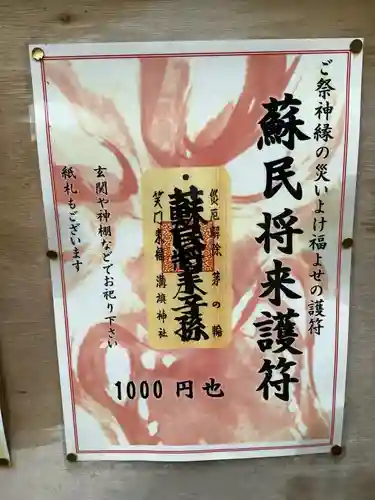 ご祭神縁の災いよけ福よせの護符
蘇民将来護符
災厄解除 茅の輪
蘇民将来子孫
笑門来福 溝旗神社
玄関や神棚などでお祀り下さい
紙札もございます
1000円也